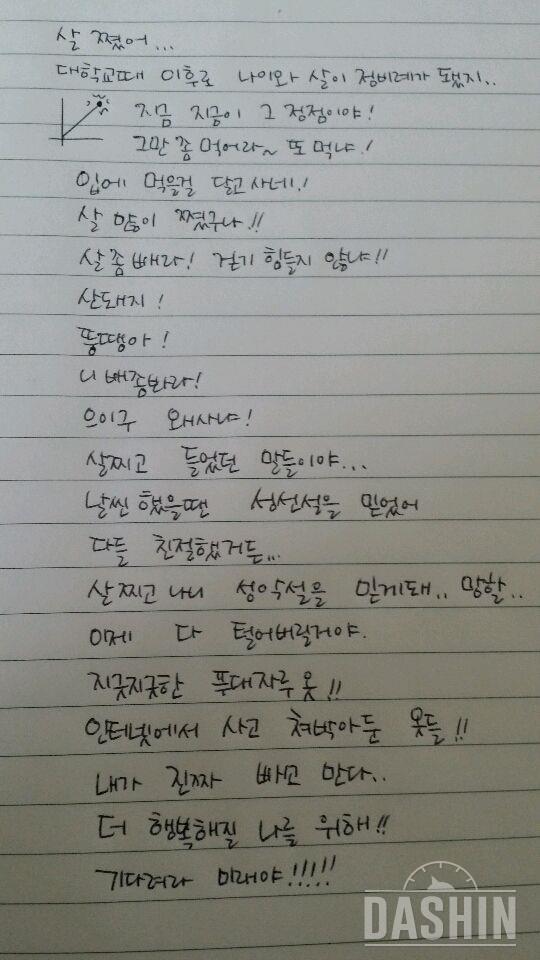 살 쪘어...
대학교때 이후로 나이와 살이 정비례가 됐지..
지금 지금이 그 정점이야!
그만 좀 먹어라~ 또 먹냐!
입에 먹을걸 달고사네!
살 많이 쪘구나!!
살 좀 빼라! 걷기 힘들지 않냐!!
산돼지!
뚱땡아!
니 배좀봐라!
으이구 왜사냐!
살찌고 들었던 말들이야...
날씬 했을땐 성선설을 믿었어
다들 친절했거든...
살 찌고 나니 성악설을 믿게돼.. 망할..
이제 다 털어버릴거야.
지긋지긋한 푸대자루 옷!!
인터넷에서 사고 쳐박아둔 옷들!!
내가 진짜 빠고 만다..
더 행복해질 나를 위해!!
기다려라 미래야!!!!!
DASHIN